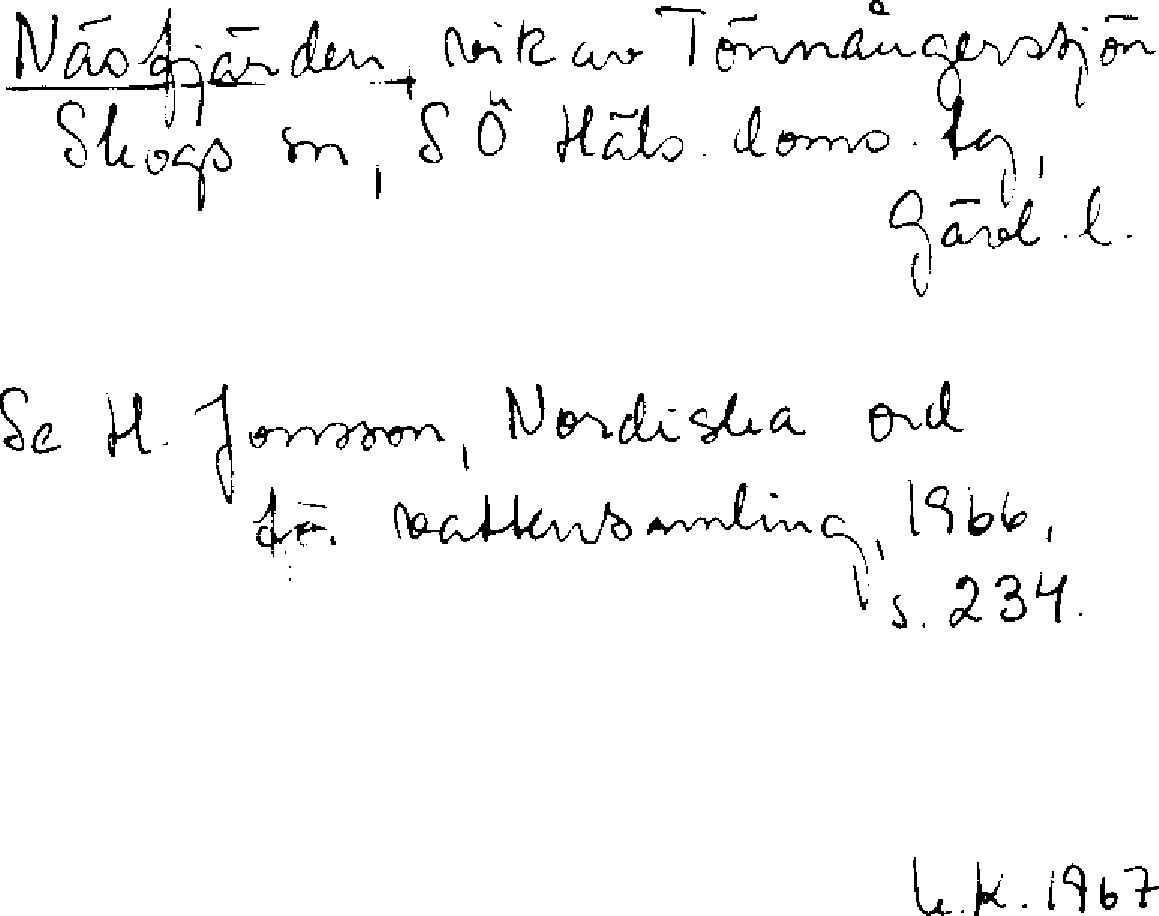 Näsfjärden, vik av Tönnångerssjön
Skogs sn, SÖ Häls. doms. tg,
Gävl. l.
Se H. Jonsson, Nordiska ord
för vattensamling, 1966,
s. 234.
K. 1967